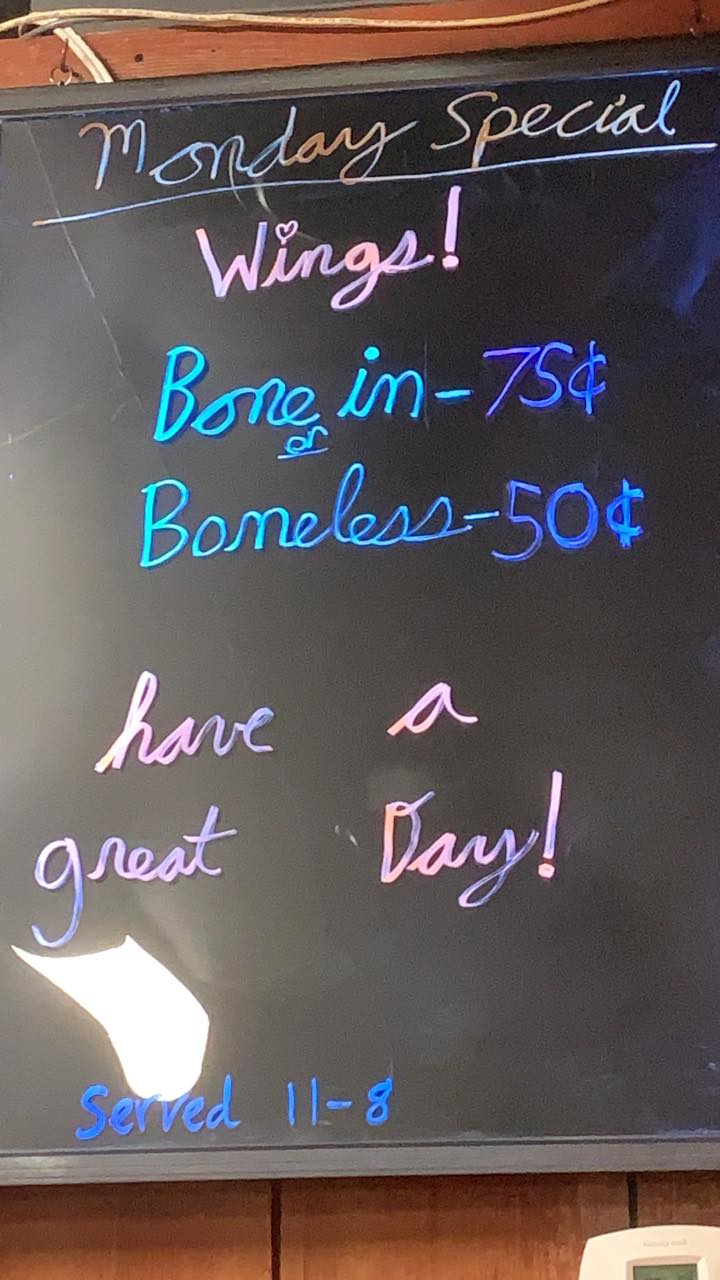 Monday Special
Wings!
Bone in - 75¢
or
Boneless - 50¢
have a
great Day!
Served 11-8